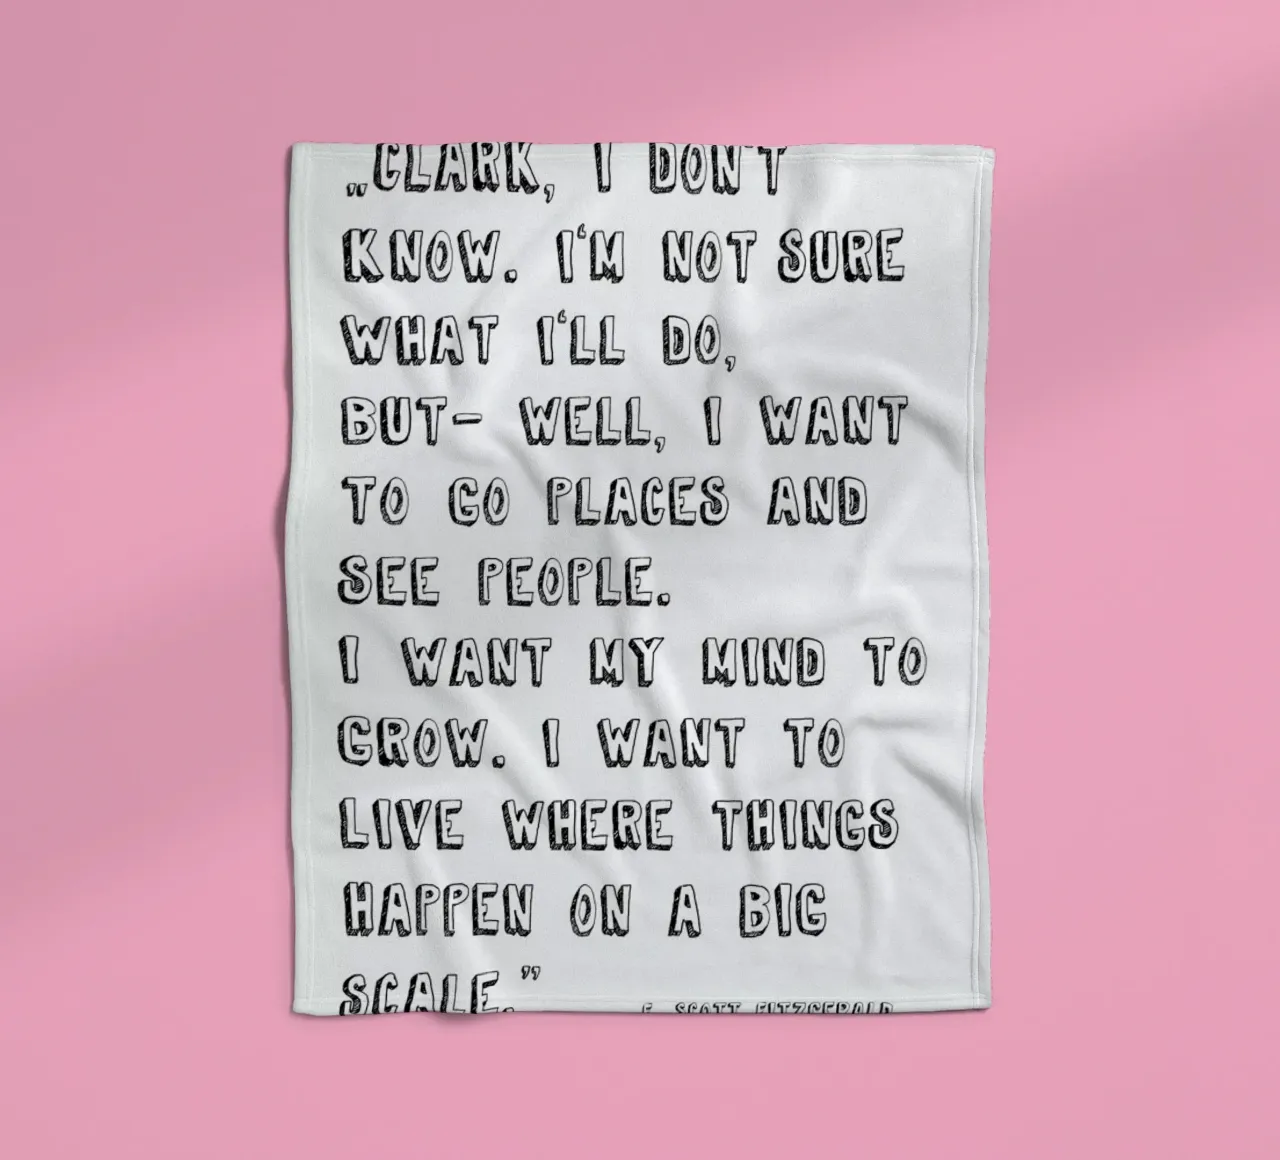 „CLARK, I DON'T
KNOW. I‘M NOT SURE
WHAT I‘LL DO,
BUT- WELL, I WANT
TO GO PLACES AND
SEE PEOPLE.
I WANT MY MIND TO
GROW. I WANT TO
LIVE WHERE THINGS
HAPPEN ON A BIG
SCALE.”
F. SCOTT FITZGERALD